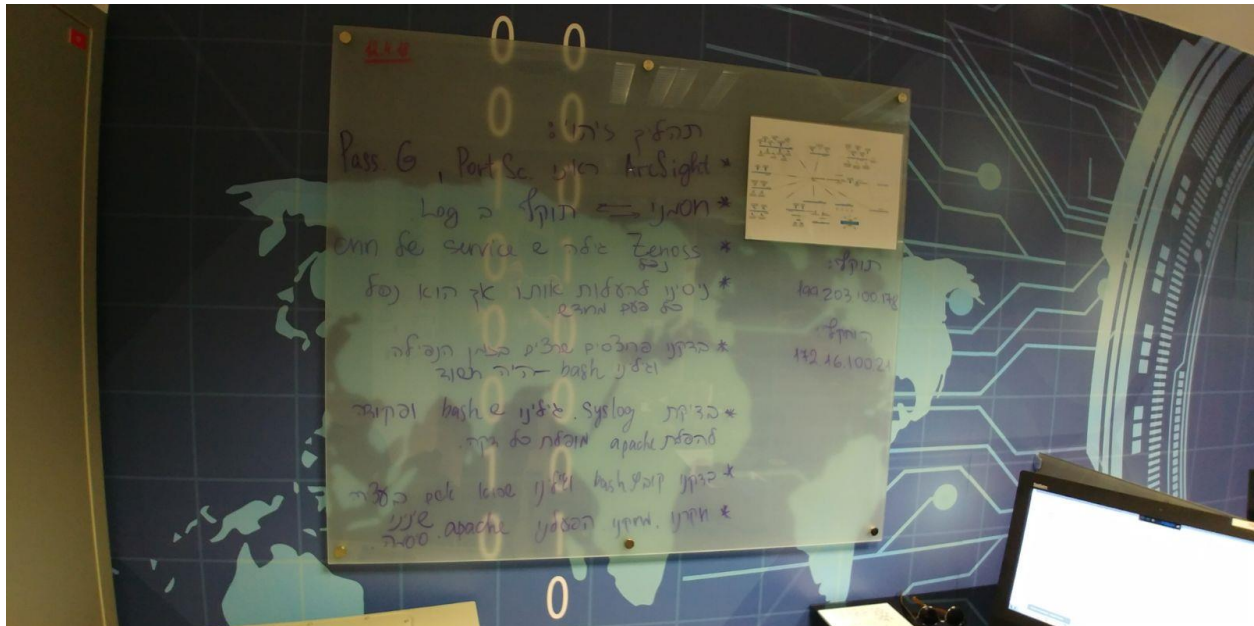 תהליך זיהוי:
* ArcSight ראינו Port Sc. , Pass G
* חסמנו ⇐ תוקף ב Log
* Zenoss גילה ש service של חחש
נפל
* ניסינו להעלות אותו אך הוא נפל
כל פעם מחדש
* בדקנו פרוצסים שרצים בזמן הנפילה
וגילינו bash – היה חשוד
* בדיקת Syslog. גילינו ש bash ופקודה
להפלת apache מופלת כל דקה.
* בדקנו קובץ bash וגילינו שהוא אשם בעצם
* חקרנו, מחקנו הפעלנו apache. שינינו
סיסמה
תוקף:
199.203.100.178
המתקף:
172.16.100.21